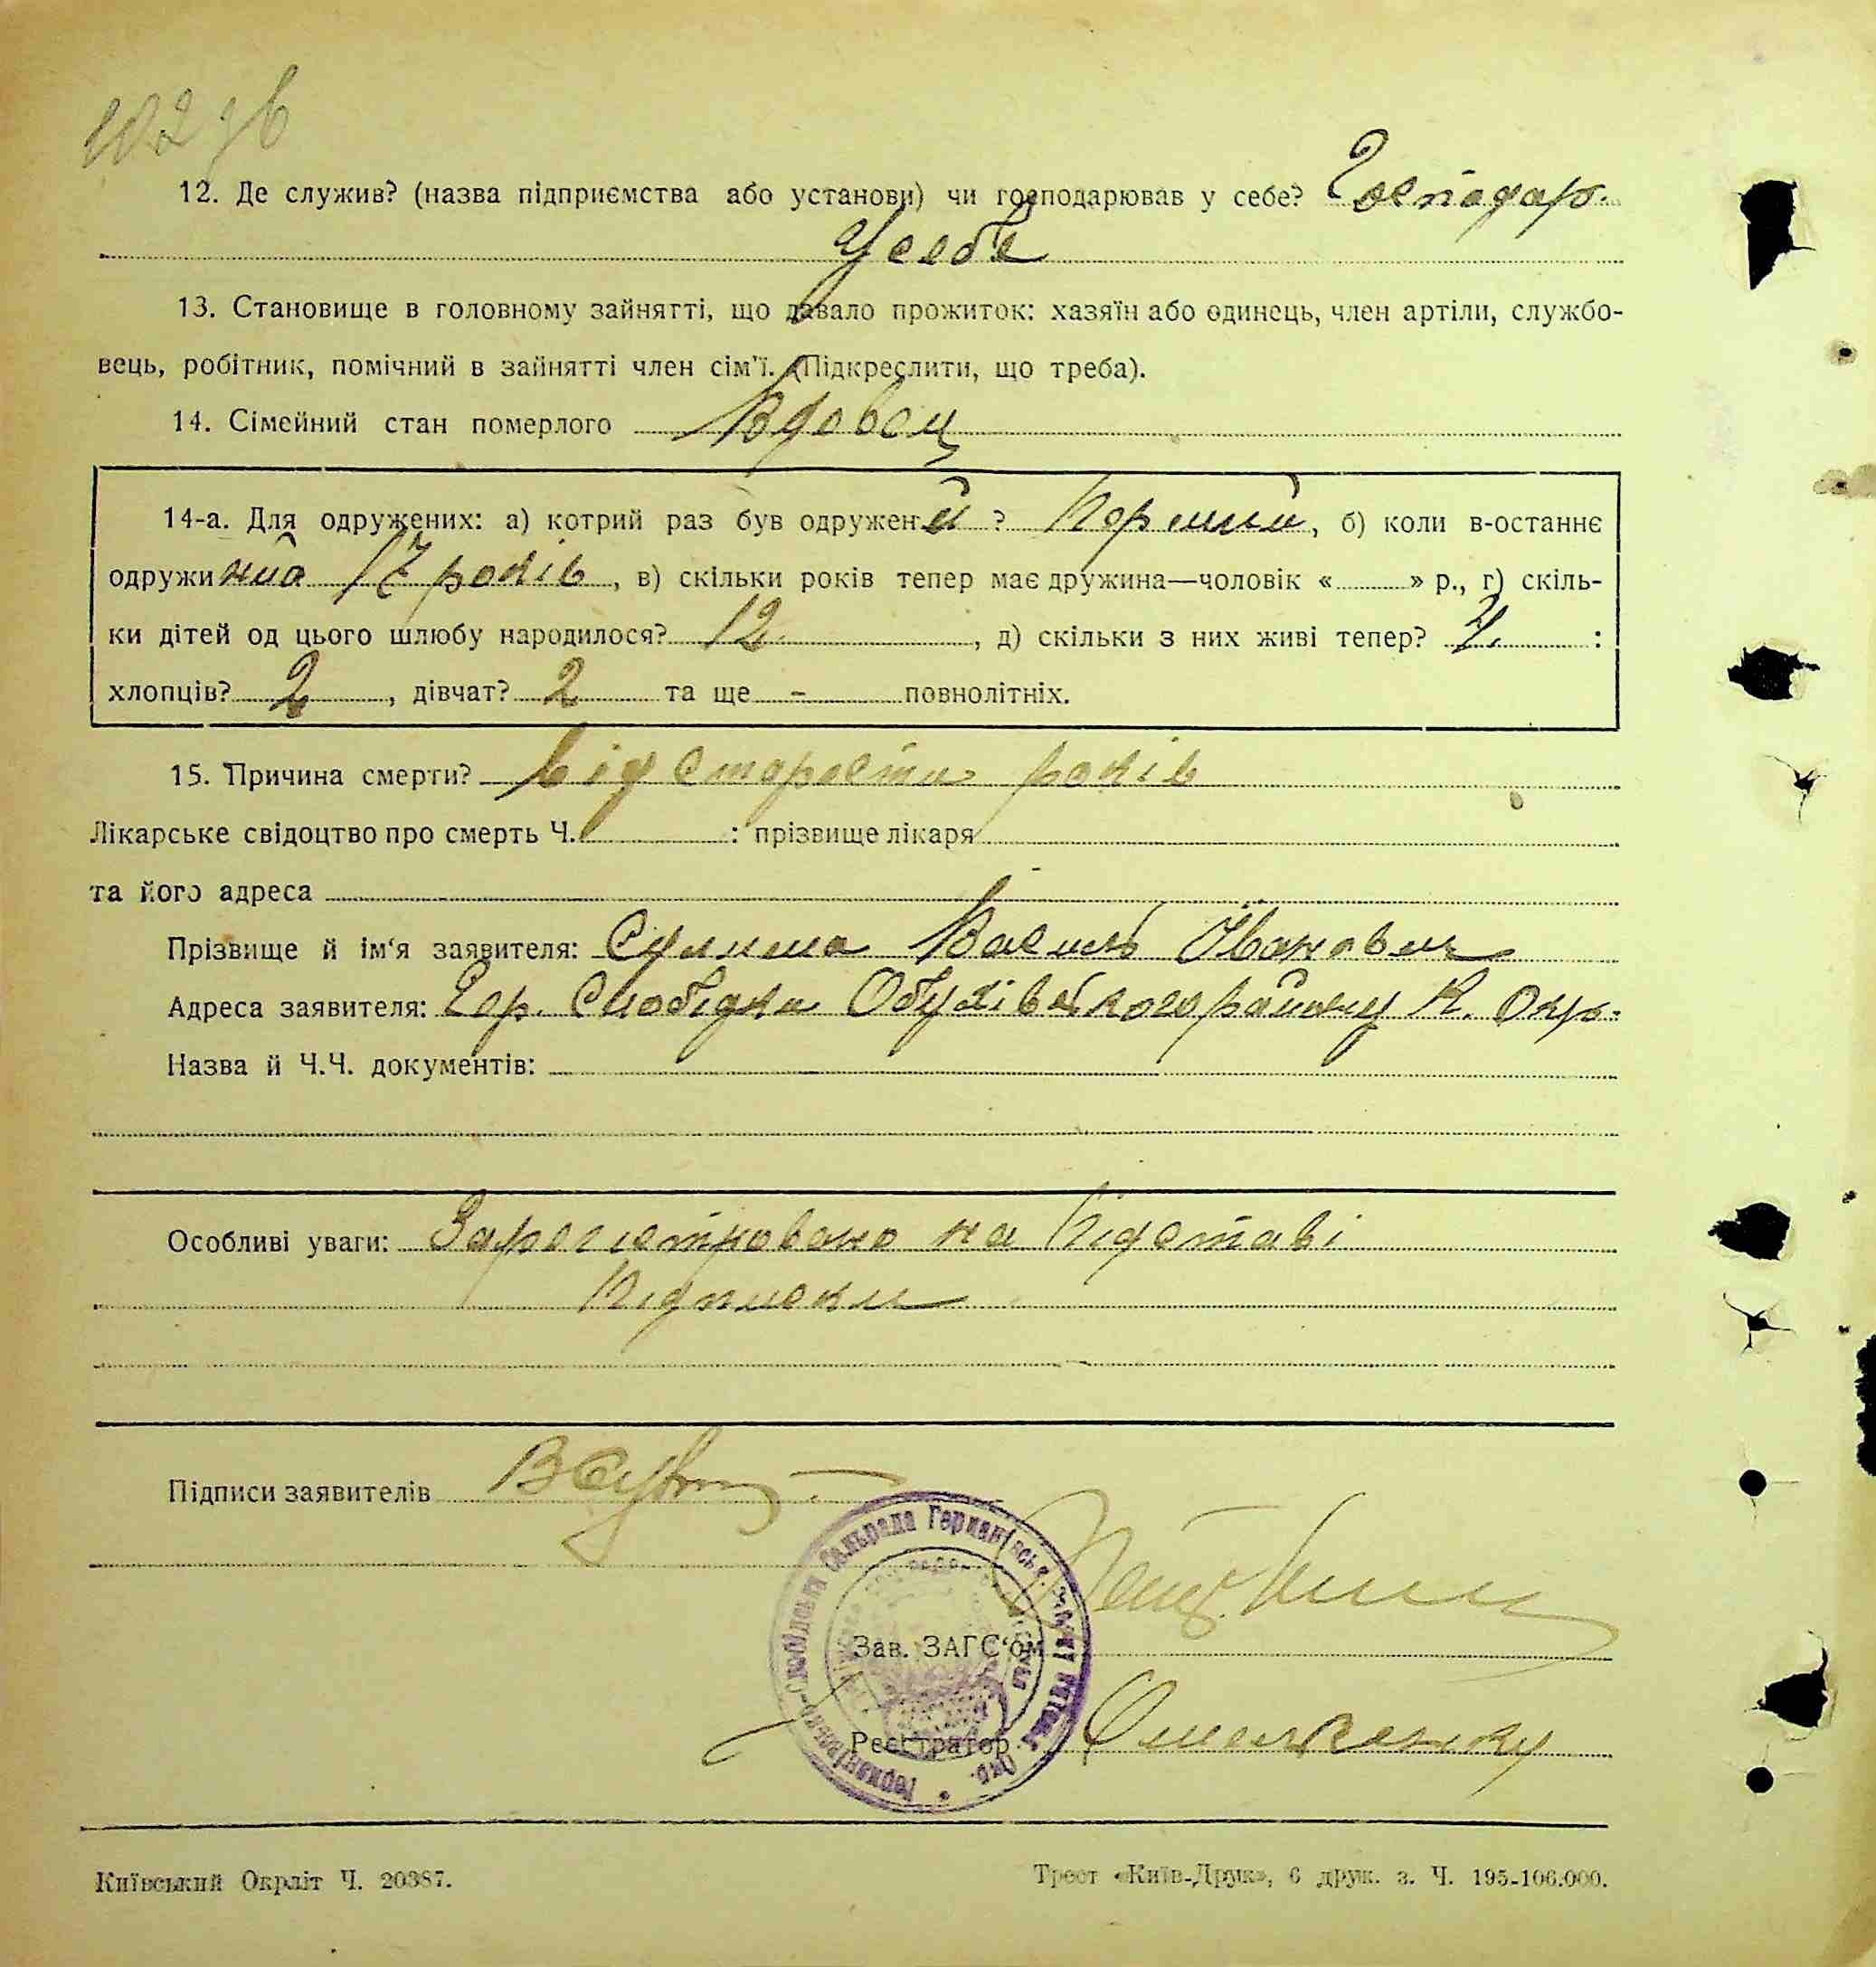 102 зв
12. Де служив? (назва підприємства або установи) чи господарював у себе? Господар.
Усебе
13. Становище в головному зайнятті, що давало прожиток: хазяїн або одинець, член артіли, службо-
вець, робітник, помічний в зайнятті член сім'ї. (Підкреслити, що треба).
14. Сімейний стан померлого Вдовец
14-а. Для одружених: а) котрий раз був одружений? Перший, б) коли в-останнє
одружи 17 років, в) скільки років тепер має дружина—чоловік «......» р., г) скіль-
ки дітей од цього шлюбу народилося? 12, д) скільки з них живі тепер? 4 :
хлопців? 2, дівчат? 2 та ще - повнолітніх.
15. Причина смерти? Від старости років
Лікарське свідоцтво про смерть Ч. : прізвище лікаря
та його адреса
Прізвище й ім'я заявителя: Сулима Василь Іванович
Адреса заявителя: Гер. Слобідка Обухівського району К. Окр.
Назва й Ч.Ч. документів:
Особливі уваги: Зарегістровано на Підставі
Підписки
Підписи заявителів
Зав. ЗАГС'ом
Реєстратор
Київський Окрліт Ч. 20387.
Трест «Київ-Друк», 6 друк. з. Ч. 195-106.000.